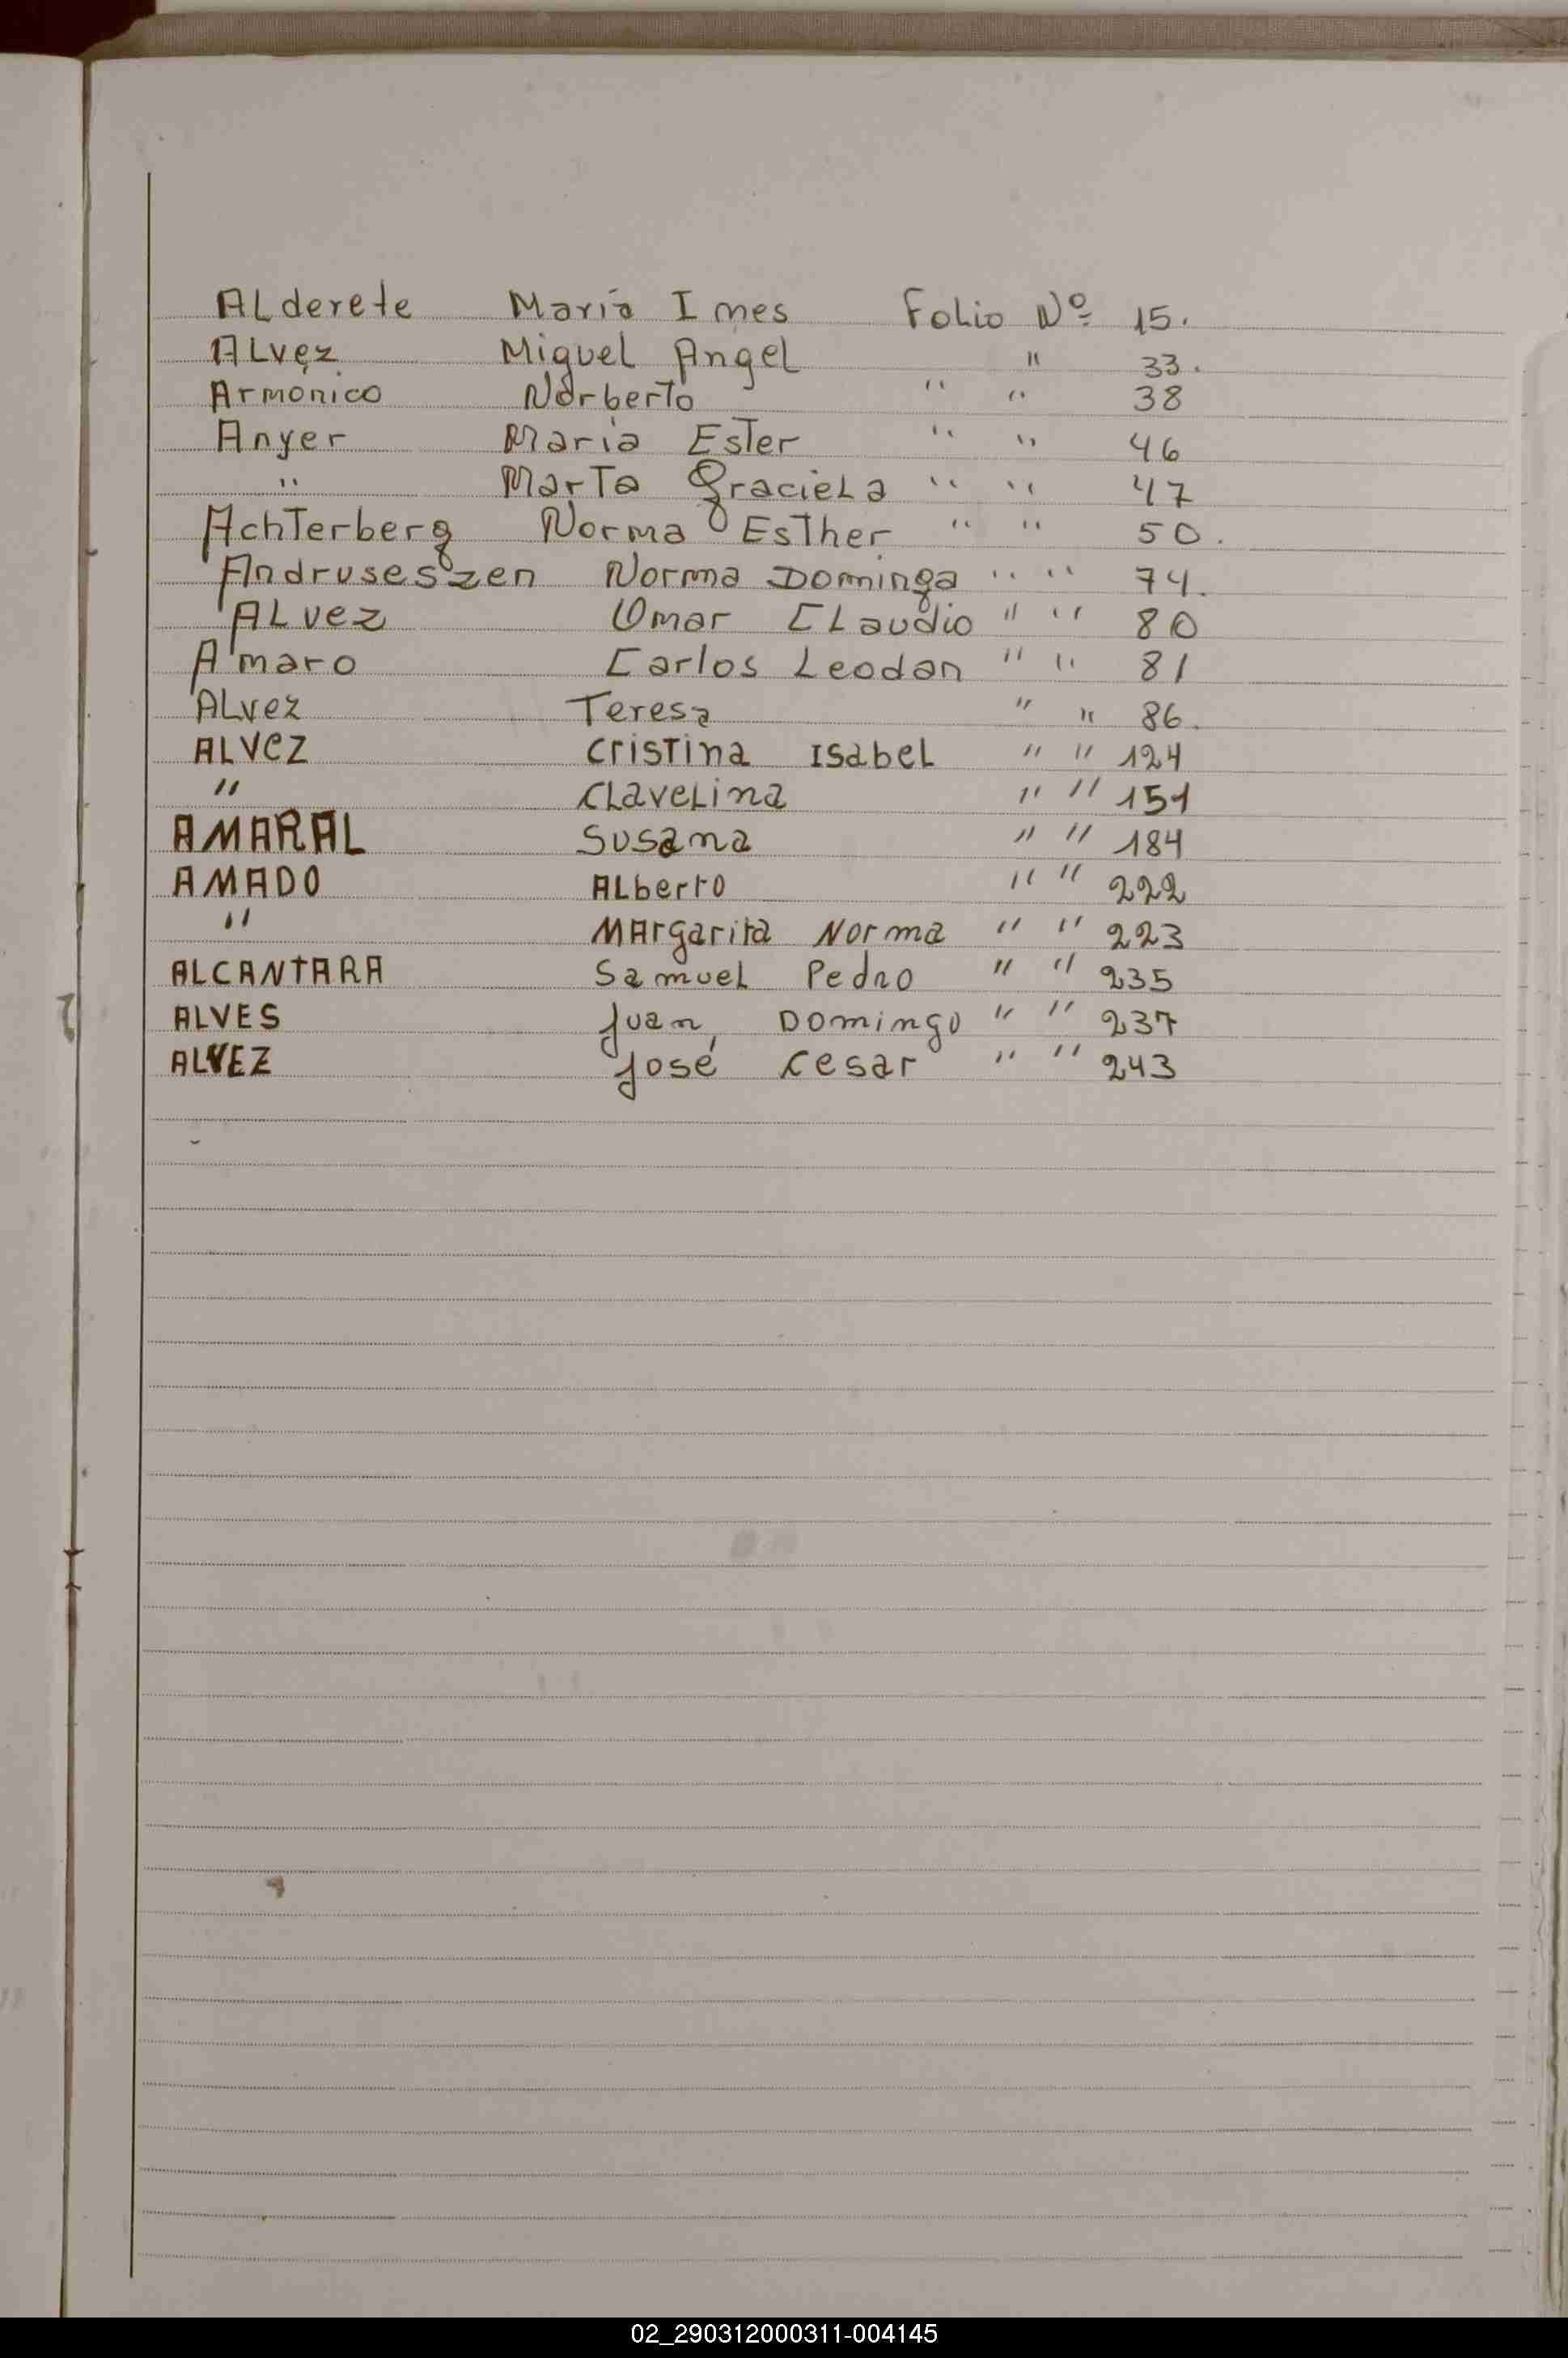 ALderete María Imes Folio Nº 15.
ALvez Miguel Angel " 33.
Armonico Norberto " " 38
Anyer Maria Ester " " 46
" MarTa GracieLa " " 47
AchTerberg Norma EsTher " " 50.
Andruseszen Norma Dominga " " 74.
ALvez Omar CLaudio " " 80
Amaro Carlos Leodan " " 81
ALvez Teresa " " 86.
ALVEZ CrisTina IsabeL " " 124
" CLaveLina " " 151
AMARAL Susana " " 184
AMADO ALberto " " 222
" MArgarita Norma " " 223
ALCANTARA SamueL Pedro " " 235
ALVES Juan, Domingo " " 237
ALVEZ José Cesar " " 243
02_290312000311-004145